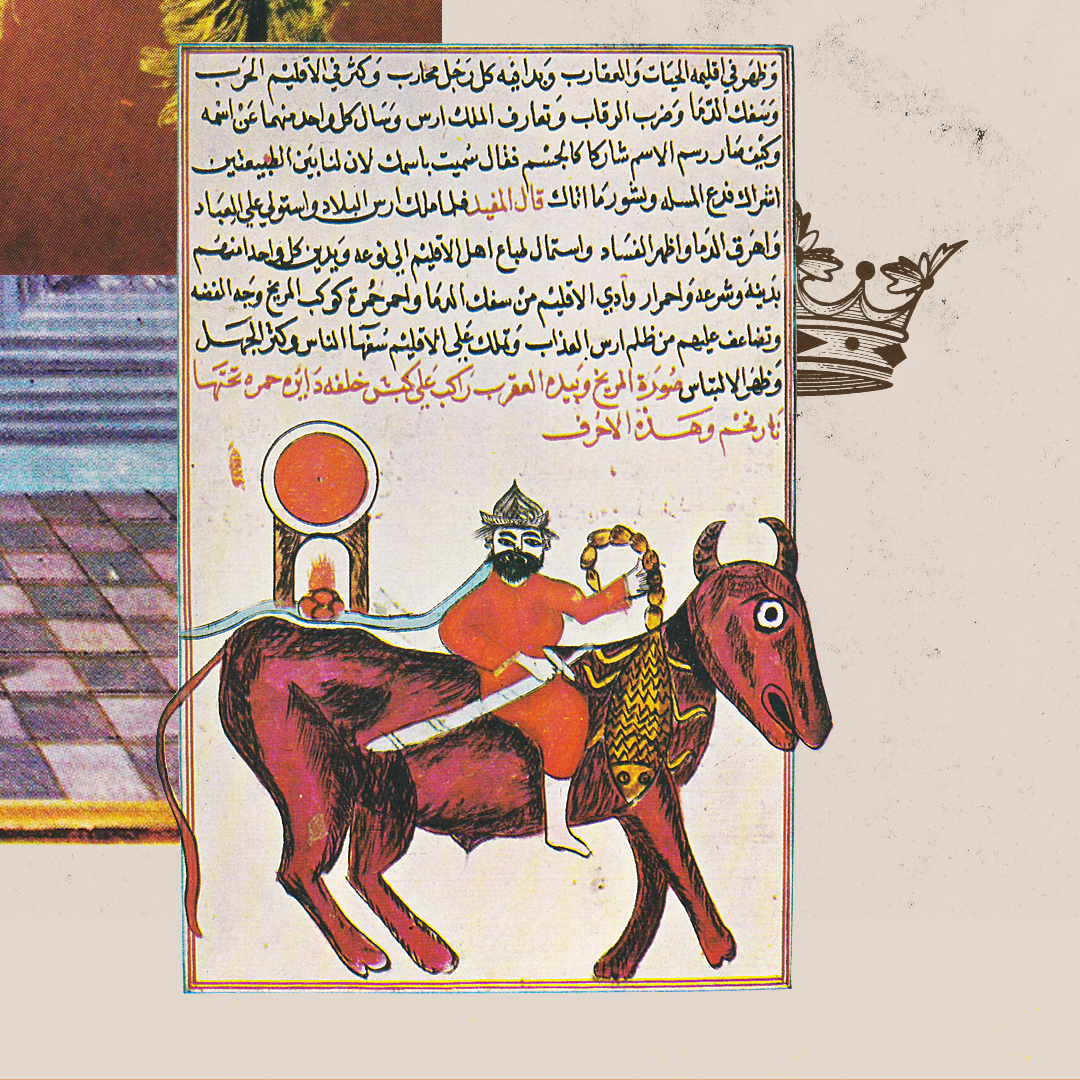 وظهر في اقليمه الحيات والعقارب وبدا فيه كل رجل محارب وكثر في الاقليم الحرب
وسفك الدما وضرب الرقاب وتعارف الملك ارس وسال كل واحد منهما عن اسمه
وكيف صار رسم الاسم شاركا كالجسم فقال سميت باسمك لان لنا بين الطبيعتين
اشراك فدع المسله وبشور ما اتاك قال المفيد فلما ملك ارس البلاد واستولي علي العباد
واهرق الدما واظهر الفساد واستمال طباع اهل الاقليم الي نوعه ويدين كل واحد منهم
بدينه وشرعه واحمرار وادي الاقليم من سفك الدما واحمر حمرة كوكب المريخ وجه الفضه
وتضاعف عليهم من ظلم ارس العذاب وتملك علي الاقليم سفها الناس وكثر الجهل
وظهر الالتباس صورة المريخ وبيده العقرب راكب علي كبش خلفه دايره حمره تحتها
نار فحم وهذة الاحرف